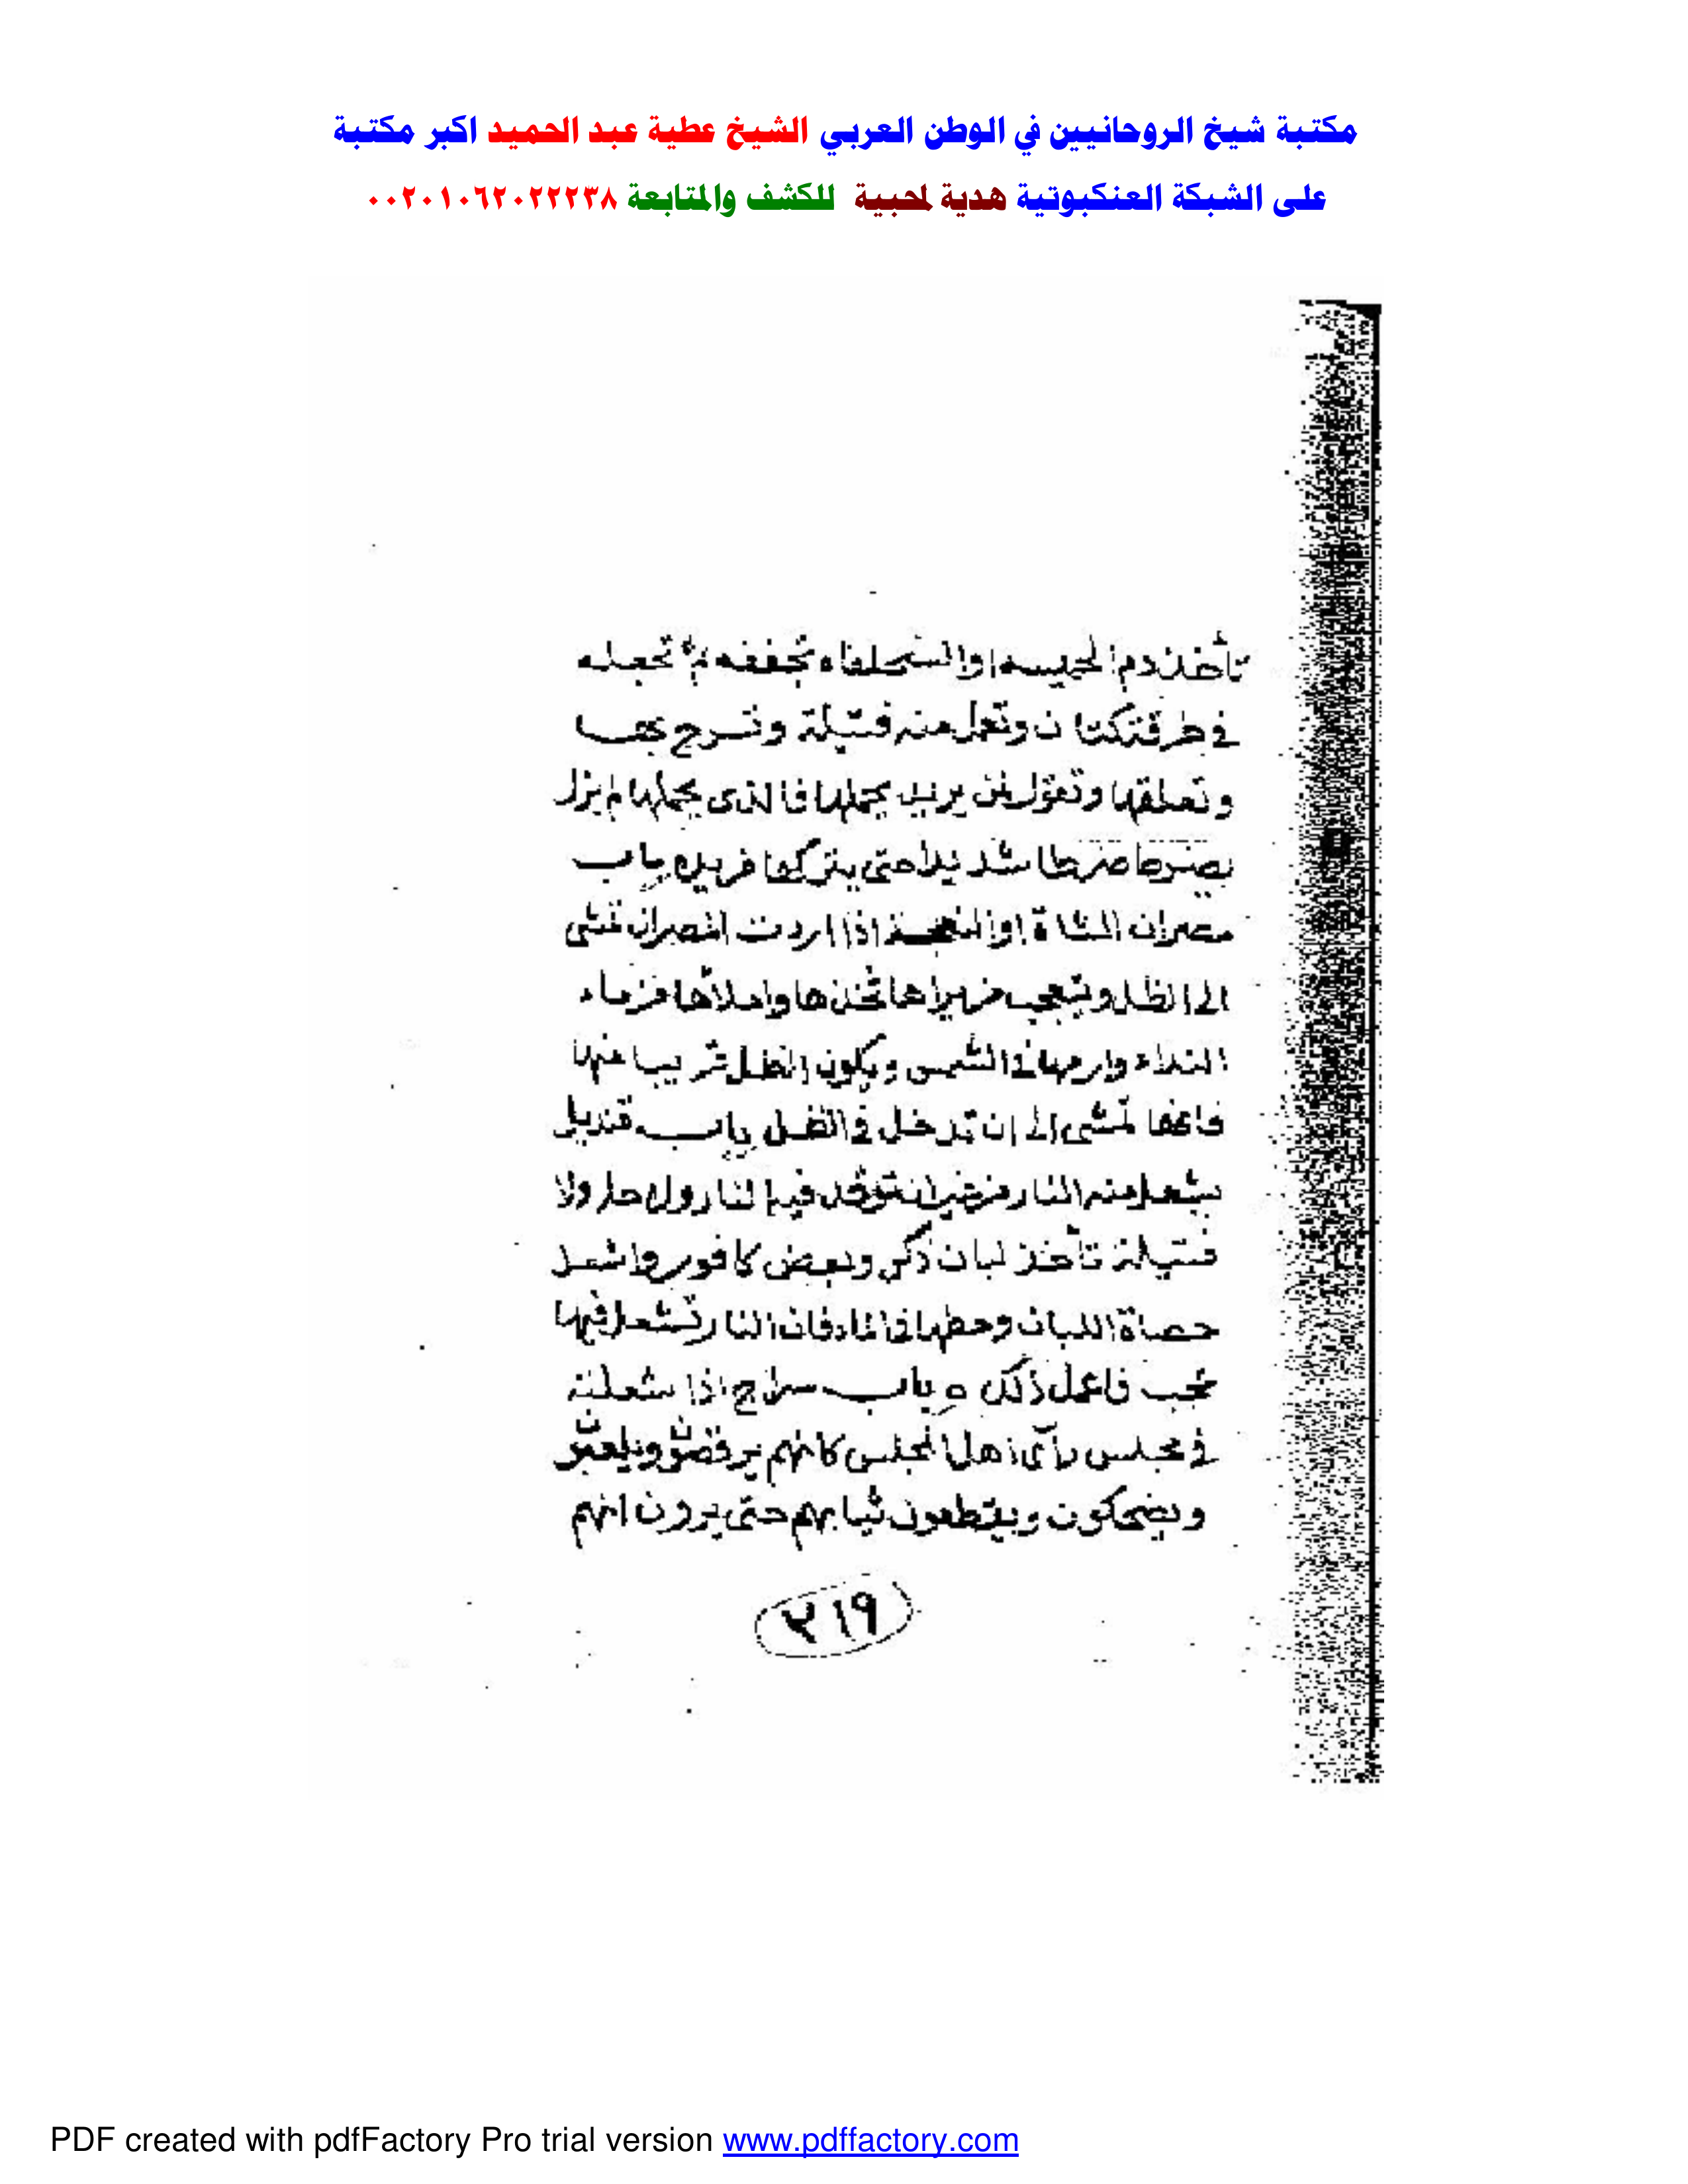 مكتبة شيخ الروحانيين في الوطن العربي الشيخ عطية عبد الحميد اكبر مكتبة
على الشبكة العنكبوتية هدية لمحبية للكشف والمتابعة ٠٠٢٠١٠٦٢٠٢٢٢٣٨
تأخذ دم والسحلفاه تجففه ثم تجعله
في خرقة كتان وتعمل منه فتيلة وتسرج بها
وتعلقها وتقول لمن يريد يحملها فالذى يحملها لم يزل
يضرط ضرطا شديدا حتى يتركها من يده باب
مصران الشاة او النعجة اذا اردت المصران تمشى
الى الظل ويتعجب من يراها تخذها واملاها من ماء
النداء وارمها في الشمس ويكون الظل قريبا منها
فانها تمشى الى ان تدخل في الظل باب قنديل
يشعل منه النار من غير ان توقد فيه النار ولا حار ولا
فتيلة تأخذ لبان ذكى وبعض كافور واشعل
حصاة اللبان وحطها في الماء فان النار تشعل فيها
عجب فاعمل ذلك ه باب سراج اذا شعلته
في مجلس رأى اهل المجلس كانهم يرقصون ويلعبون
ويضحكون ويقطعون ثيابهم حتى يرون انهم
٢١٩
PDF created with pdfFactory Pro trial version www.pdffactory.com